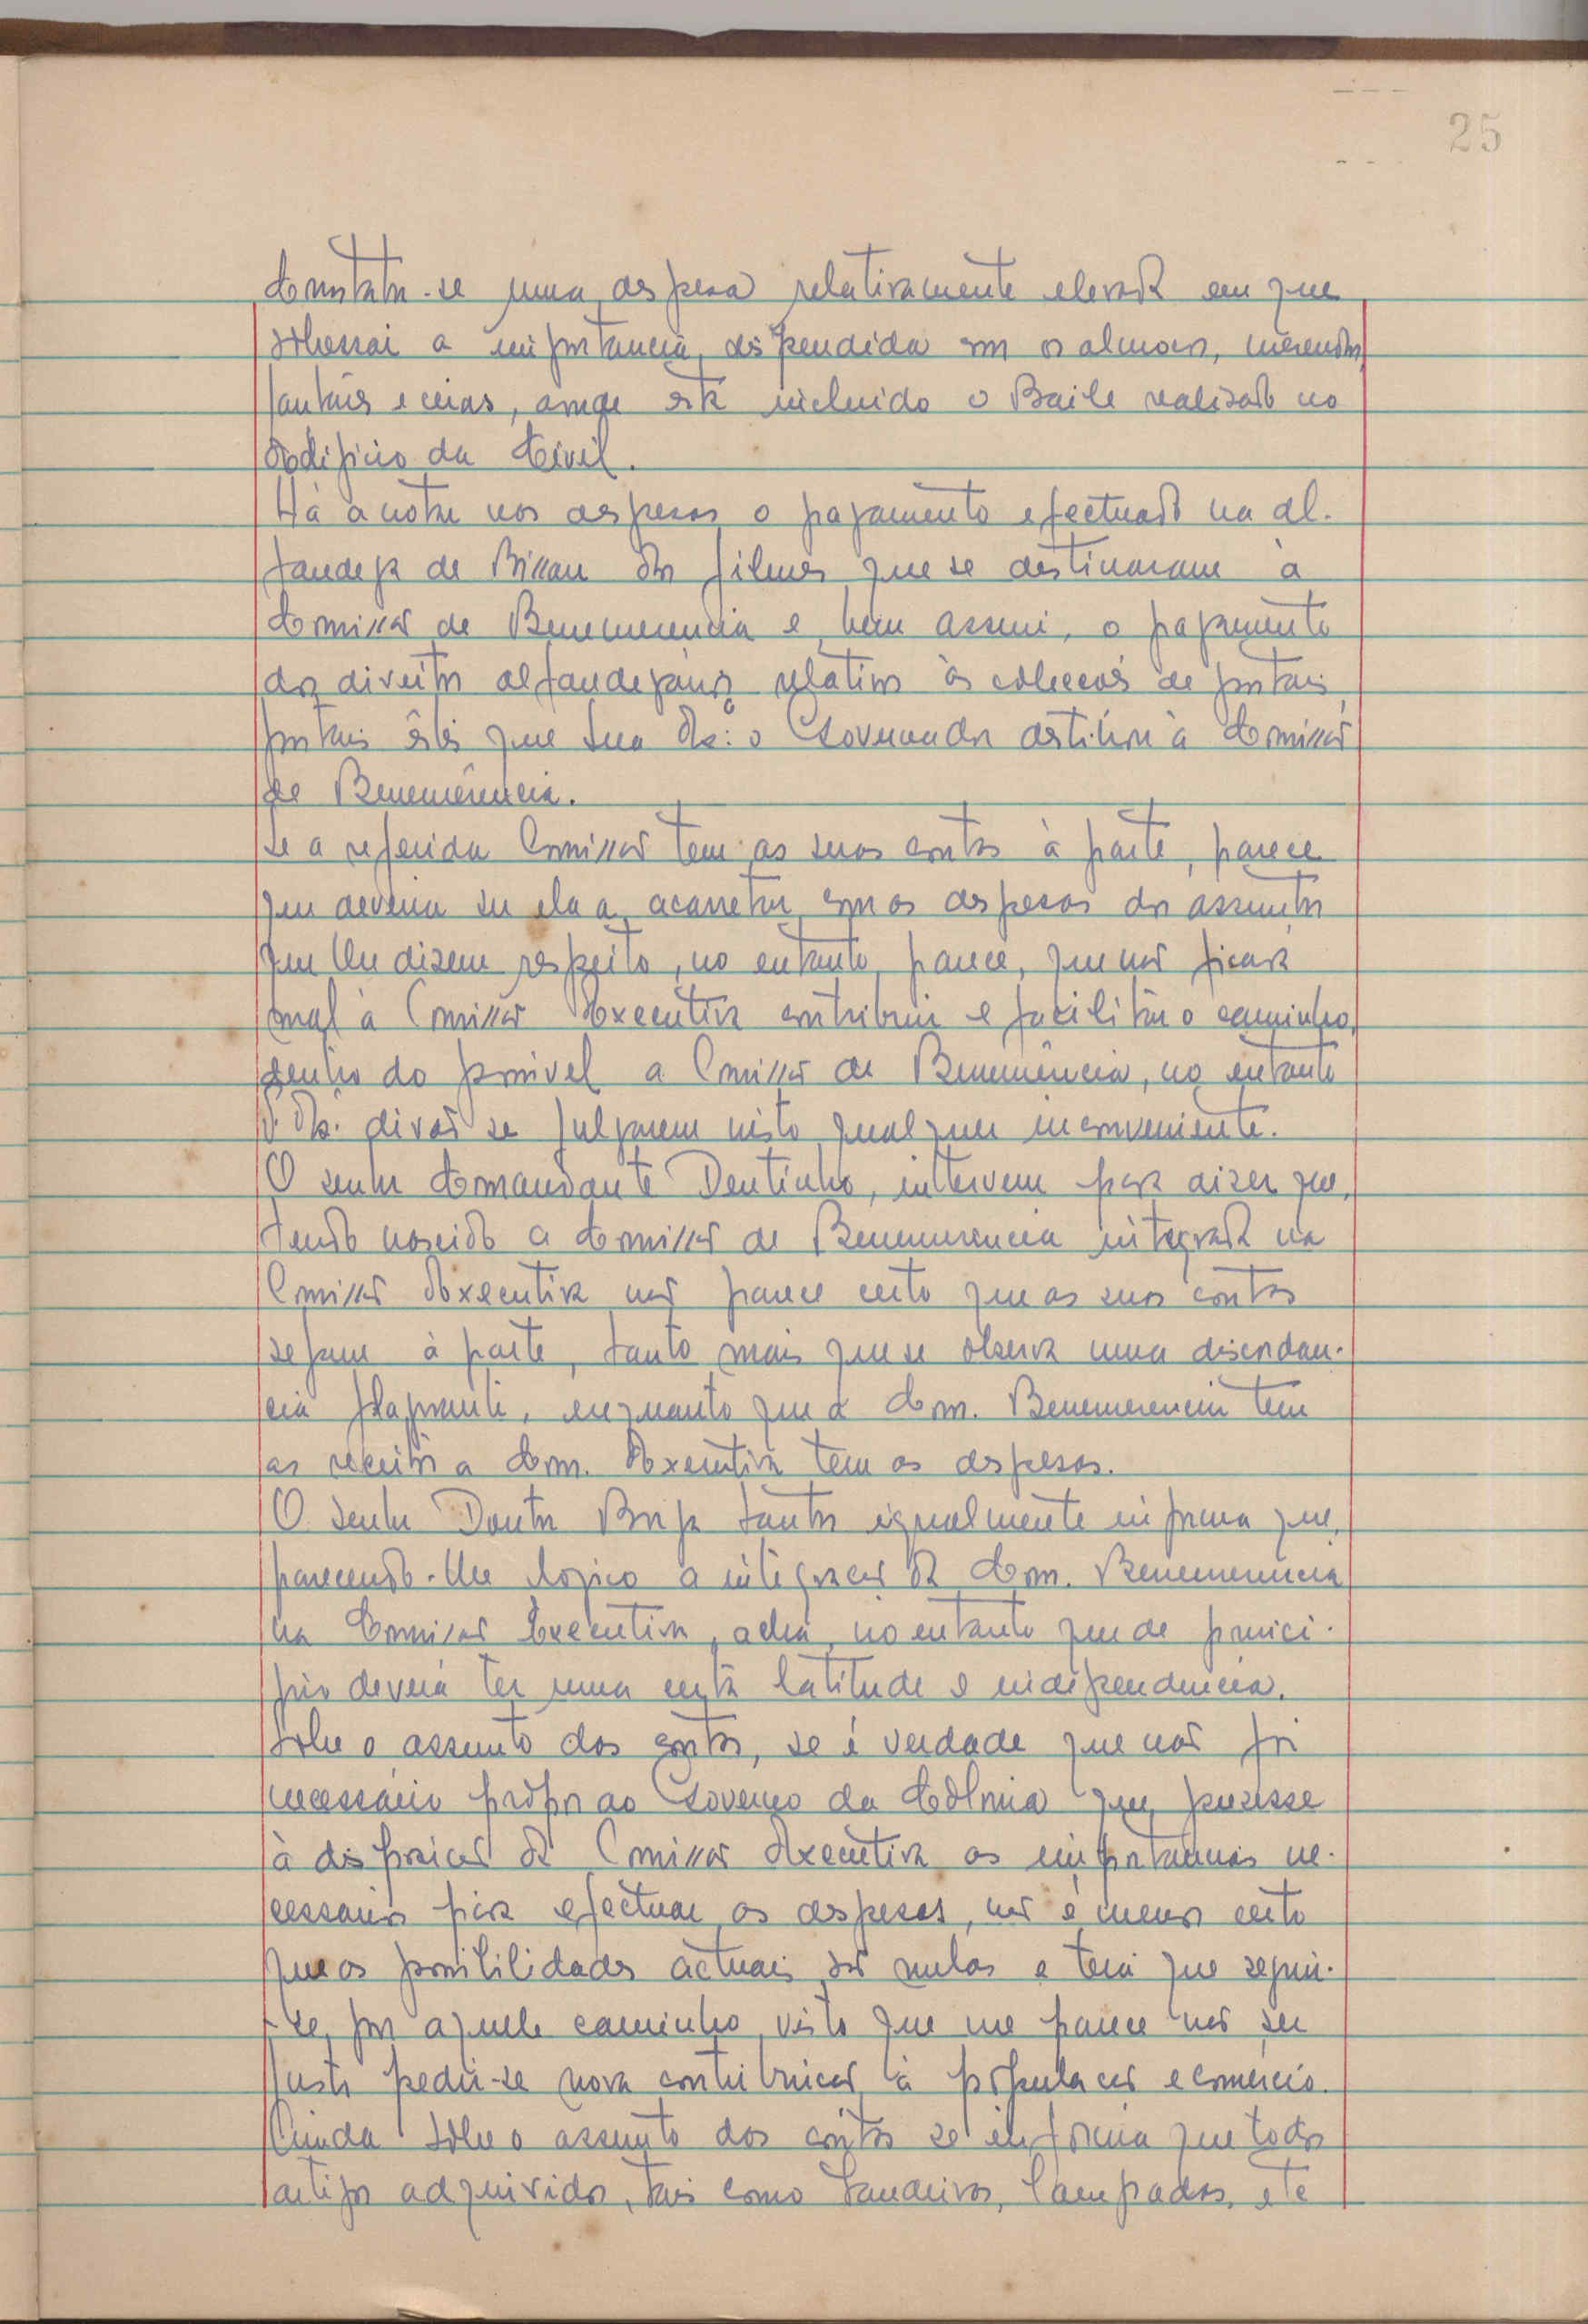 25
Constata-se uma despesa relativamente elevada em que
sobressai a importancia despendida com os almoços, merendas,
jantares e ceias, aonde está incluido o Baile realizado no
Edificio da Civil.
Há a notar nas despesas o pagamento efectuado na Al-
fandega de Bissau dos filmes que se destinaram à
Comissão de Benemerencia e bem assim, o pagamento
dos direitos alfandegários relativos às colecções de postais,
postais êstes que Sua Exª o Governador destinou à Comissão
de Benemerência.
Se a referida Comissão tem as suas contas à parte, parece
que deveria ser ela a acarretar com as despesas dos assuntos
que lhe dizem respeito, no entanto, parece, que não ficará
mal à Comissão Executiva contribuir e facilitar o caminho,
dentro do possivel a Comissão de Benemerência, no entanto
V. Exª. dirão se julgarem nisto qualquer inconveniente.
O senhor Comandante Dentinho, intervem para dizer que,
tendo nascido a Comissão de Benemerencia integrada na
Comissão Executiva não parece certo que as suas contas
sejam à parte, tanto mais que se observa uma discordan-
cia flagrante, enquanto que a Com. Benemerencia tem
as receitas a Com. Executiva tem as despesas.
O senhor Doutor Borja Santos igualmente informa que,
parecendo-lhe logico a integração da Com. Benemerencia
na Comissão Executiva, acha, no entanto que de princi-
pio deveria ter uma certa latitude e independencia.
Sobre o assunto das contas, se é verdade que não foi
necessário propor ao Governo da Colónia que puzesse
à disposição da Comissão Executiva as importancias ne-
cessarias para efectuar as despesas, não é menos certo
que as possibilidades actuais são nulas e terá que seguir-
-se, por aquele caminho, visto que me parece não ser
justo pedir-se nova contribuição à população e comércio.
Ainda sobre o assunto das contas se informa que todos
artigos adquiridos, tais como bandeiras, lampadas, etc